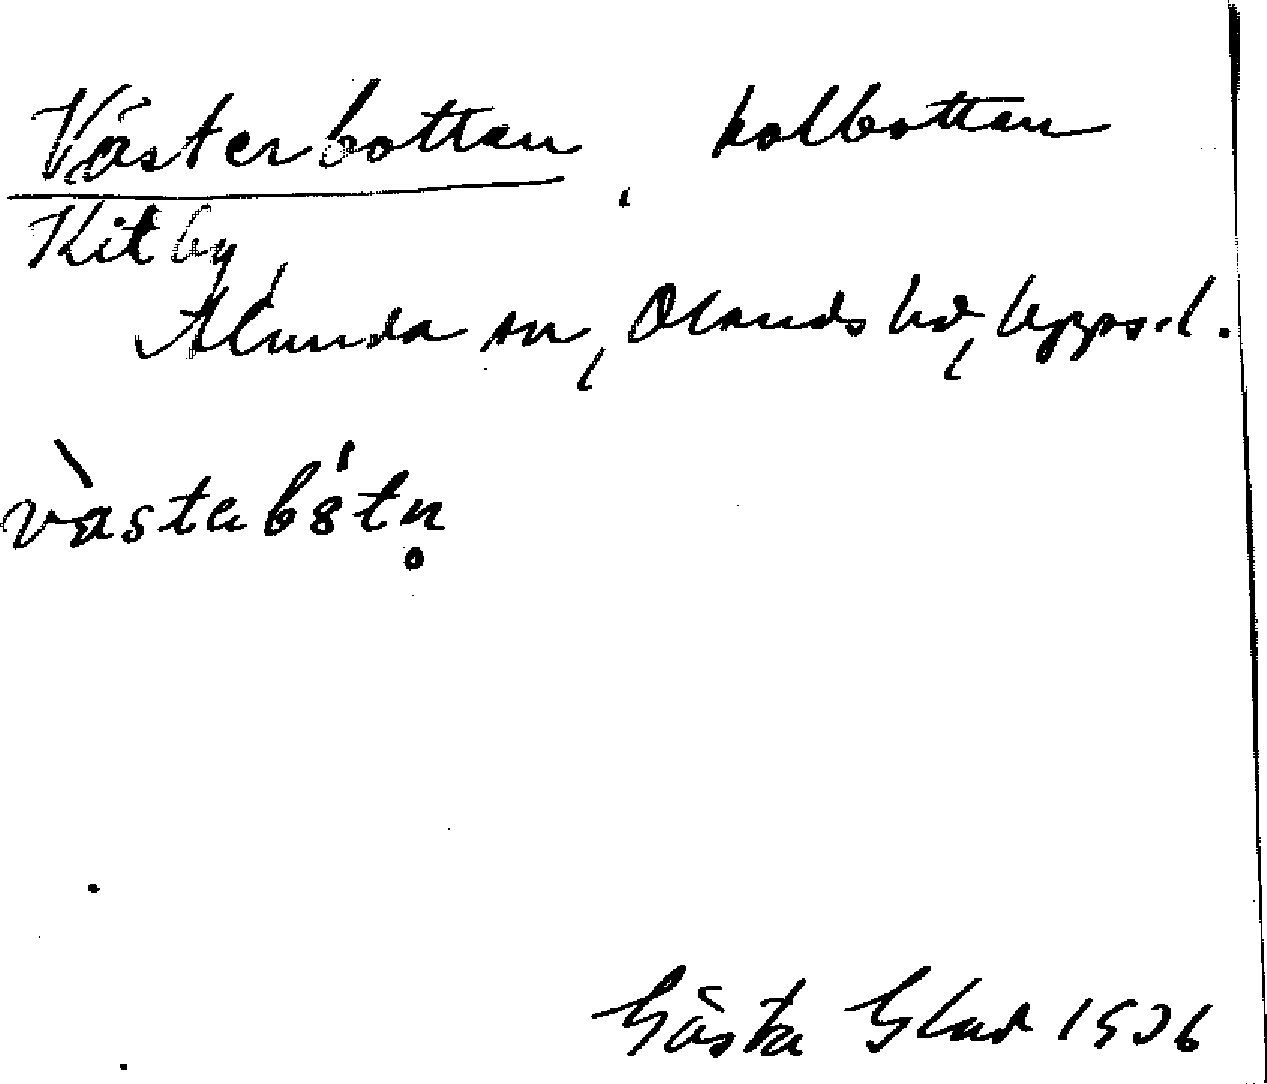 Västerbotten, kolbotten
Kilby,
Alunda sn, Olands hd, Upps.l.
Gösta Glad 1936